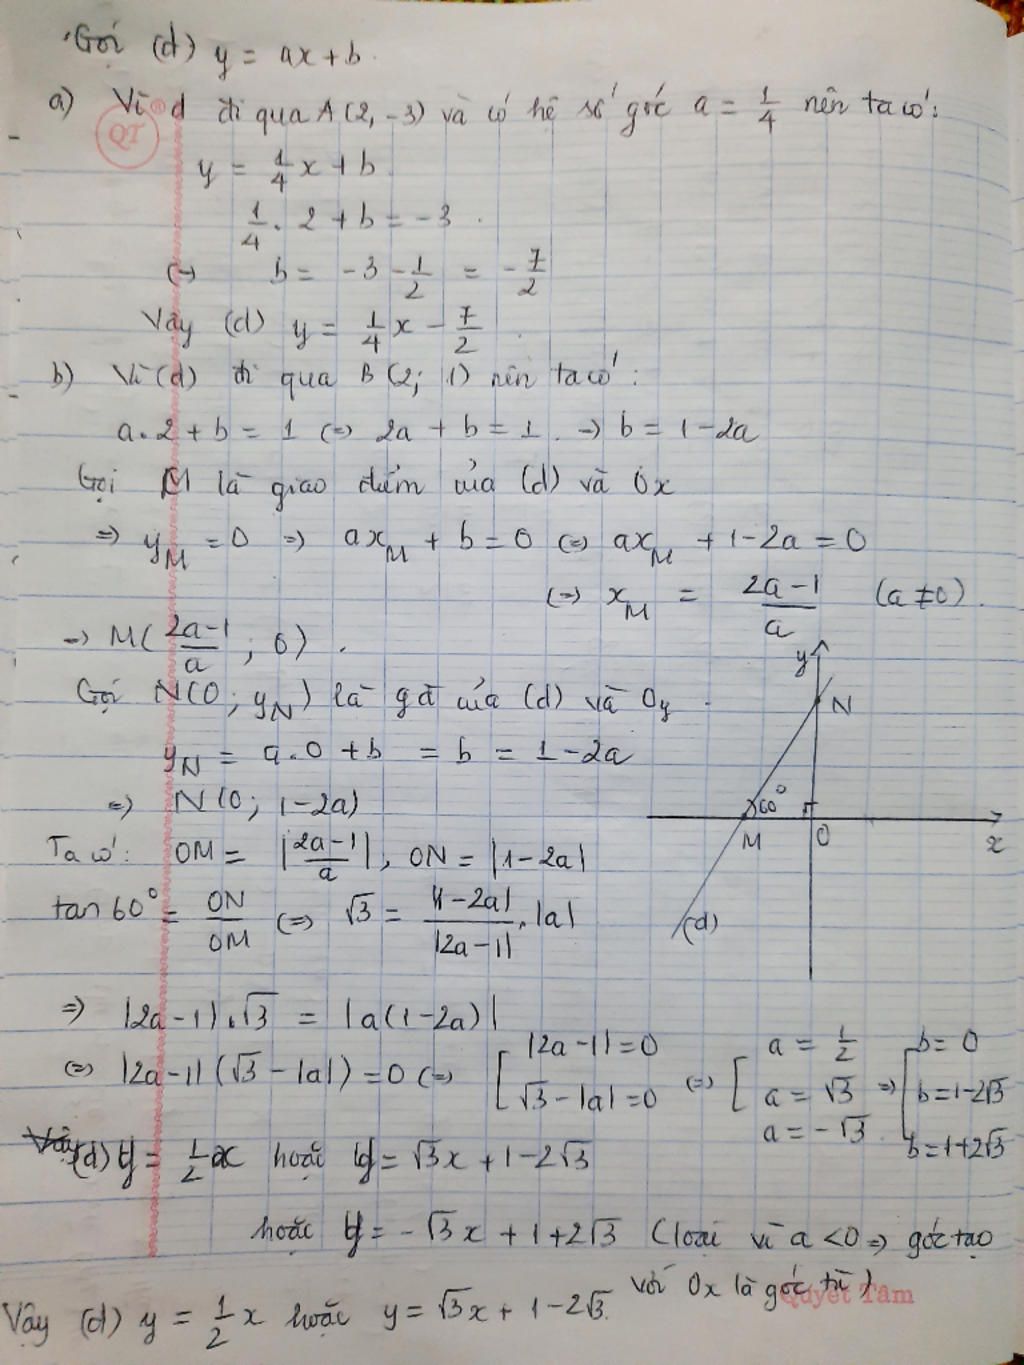 Gọi (d) y = ax + b.
a) Vì d đi qua A(2, -3) và có hệ số góc a = 1/4 nên ta có:
QT ®
y = 1/4 x + b
1/4 . 2 + b = -3.
(=) b = -3 - 1/2 = -7/2
Vậy (d) y = 1/4 x - 7/2.
b) Vì (d) đi qua B(2; 1) nên ta có:
a.2 + b = 1 (=) 2a + b = 1. → b = 1 - 2a
Gọi M là giao điểm của (d) và Ox
=> y_M = 0 => ax_M + b = 0 (=) ax_M + 1 - 2a = 0
(=) x_M = (2a-1)/a (a ≠ 0).
→ M((2a-1)/a ; 0).
Gọi N(0; y_N) là gđ của (d) và Oy.
y_N = a.0 + b = b = 1 - 2a
=> N(0; 1-2a)
y
N
60°
M
O
x
(d)
Ta có: OM = |(2a-1)/a|, ON = |1-2a|
tan 60° = ON/OM (=) √3 = |1-2a|/|2a-1| . |a|
=> |2a-1|.√3 = |a(1-2a)|
(=) |2a-1|(√3 - |a|) = 0 (=) [ |2a-1| = 0 √3 - |a| = 0 (=) [ a = 1/2 a = √3 a = -√3 => [ b = 0 b = 1-2√3 b = 1+2√3
(d) y = 1/2 x hoặc y = √3x + 1 - 2√3
hoặc y = -√3x + 1 + 2√3 (loại vì a < 0 => góc tạo
với Ox là góc tù)
Quyết Tâm
Vậy (d) y = 1/2 x hoặc y = √3x + 1 - 2√3.